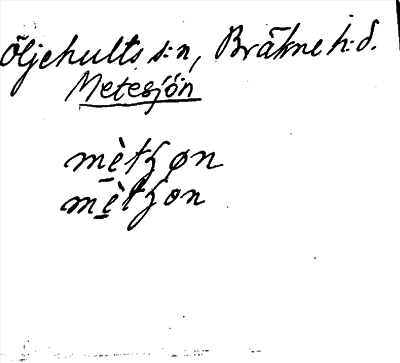 Öljehults s:n, Bräkne h:d.
Metesjön
mètʒøn
mètʒon